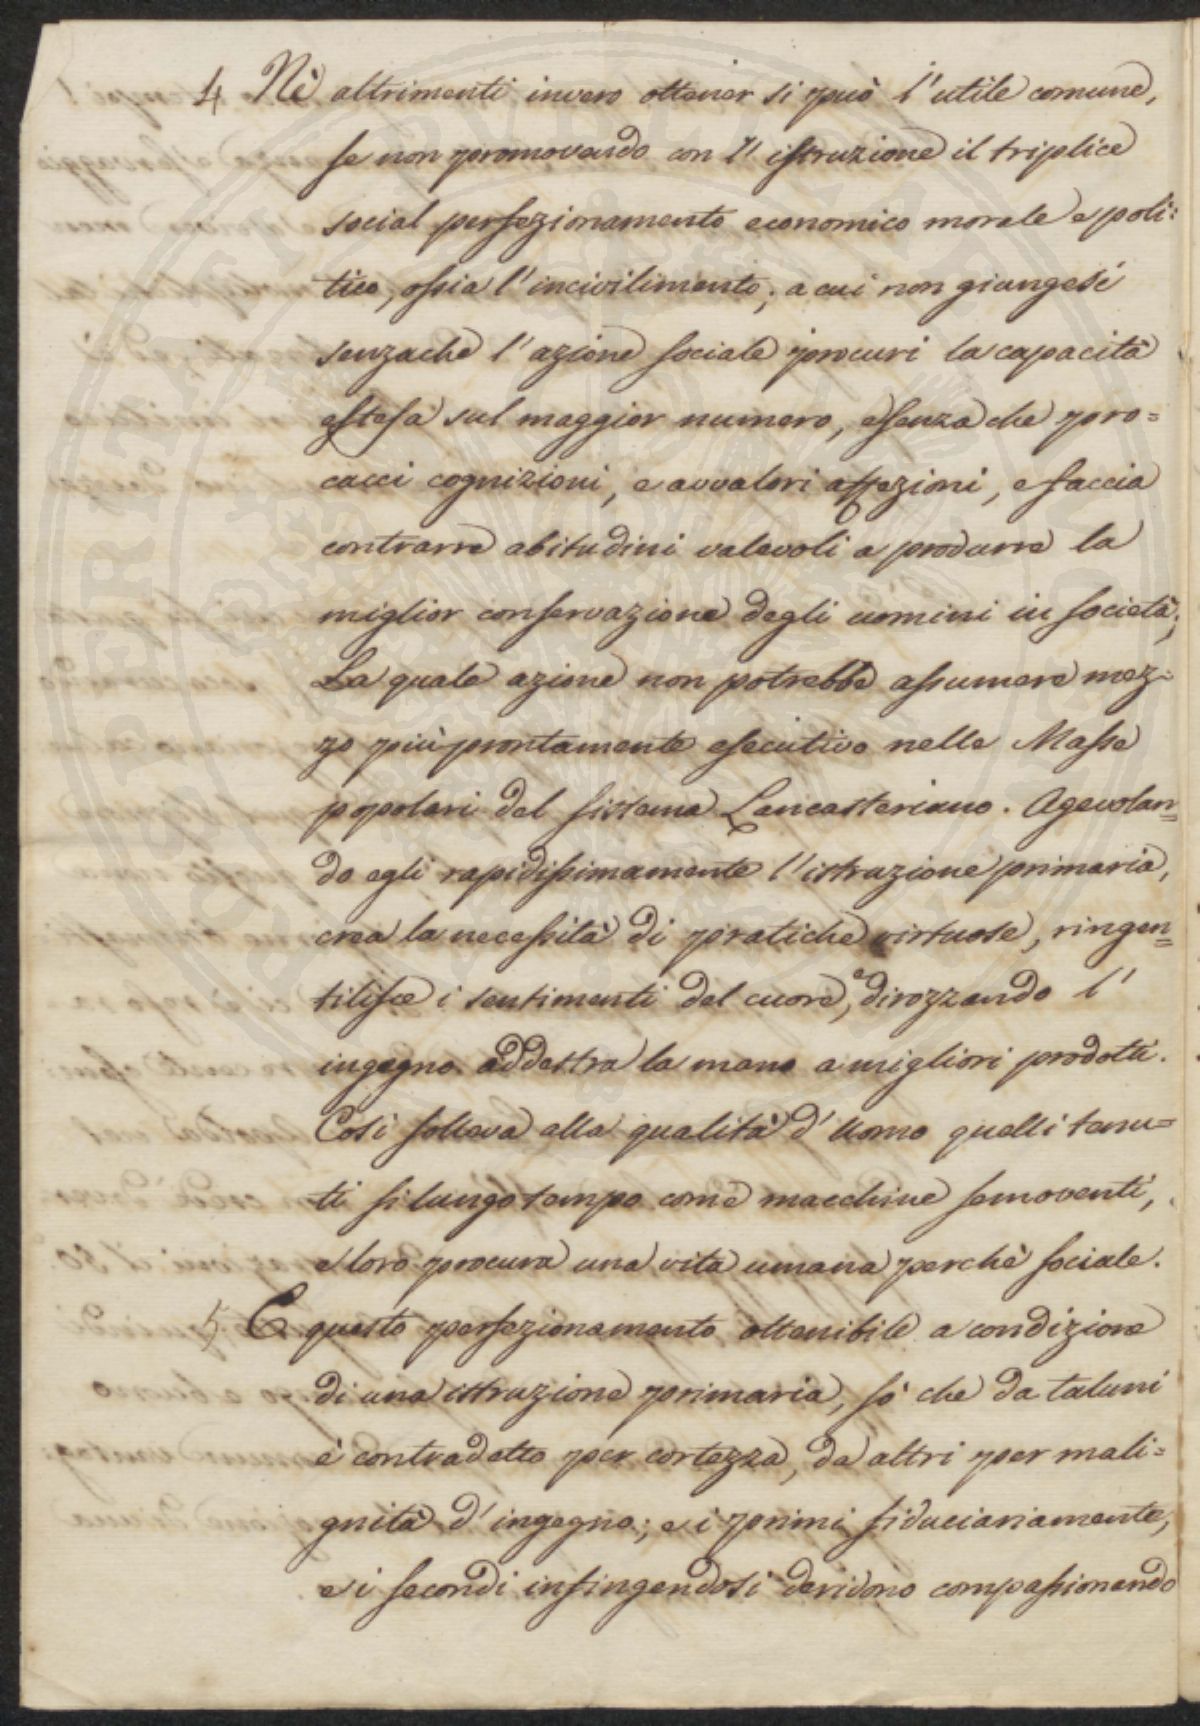 4 Nè altrimenti invero ottener si può l'utile comune,
se non promovendo con l'istruzione il triplice
social perfezionamento economico morale e poli:
tico, ossia l'incivilimento; a cui non giungesi
senzache l'azione sociale procuri la capacità
estesa sul maggior numero, e senza che pro=
cacci cognizioni, e avvalori affezioni, e faccia
contrarre abitudini valevoli a produrre la
miglior conservazione degli uomini in società;
La quale azione non potrebbe assumere mez=
zo più prontamente esecutivo nelle Masse
popolari del sistema Lancasteriano. Agevolan=
do egli rapidissimamente l'istruzione primaria,
crea la necessità di pratiche virtuose, ringen=
tilisce i sentimenti del cuore, e dirozzando l'
ingegno addestra la mano a migliori prodotti.
Così solleva alla qualità d'Uomo quelli tenu=
ti sì lungo tempo come macchine semoventi,
e loro procura una vita umana perchè sociale.
5. E questo perfezionamento ottenibile a condizione
di una istruzione primaria, sò che da taluni
è contradetto per cortezza, da altri per mali=
gnità d'ingegno; e i primi fiduciariamente,
e i secondi infingendosi deridono compassionando
PUBLICAE
PROSPERITATI